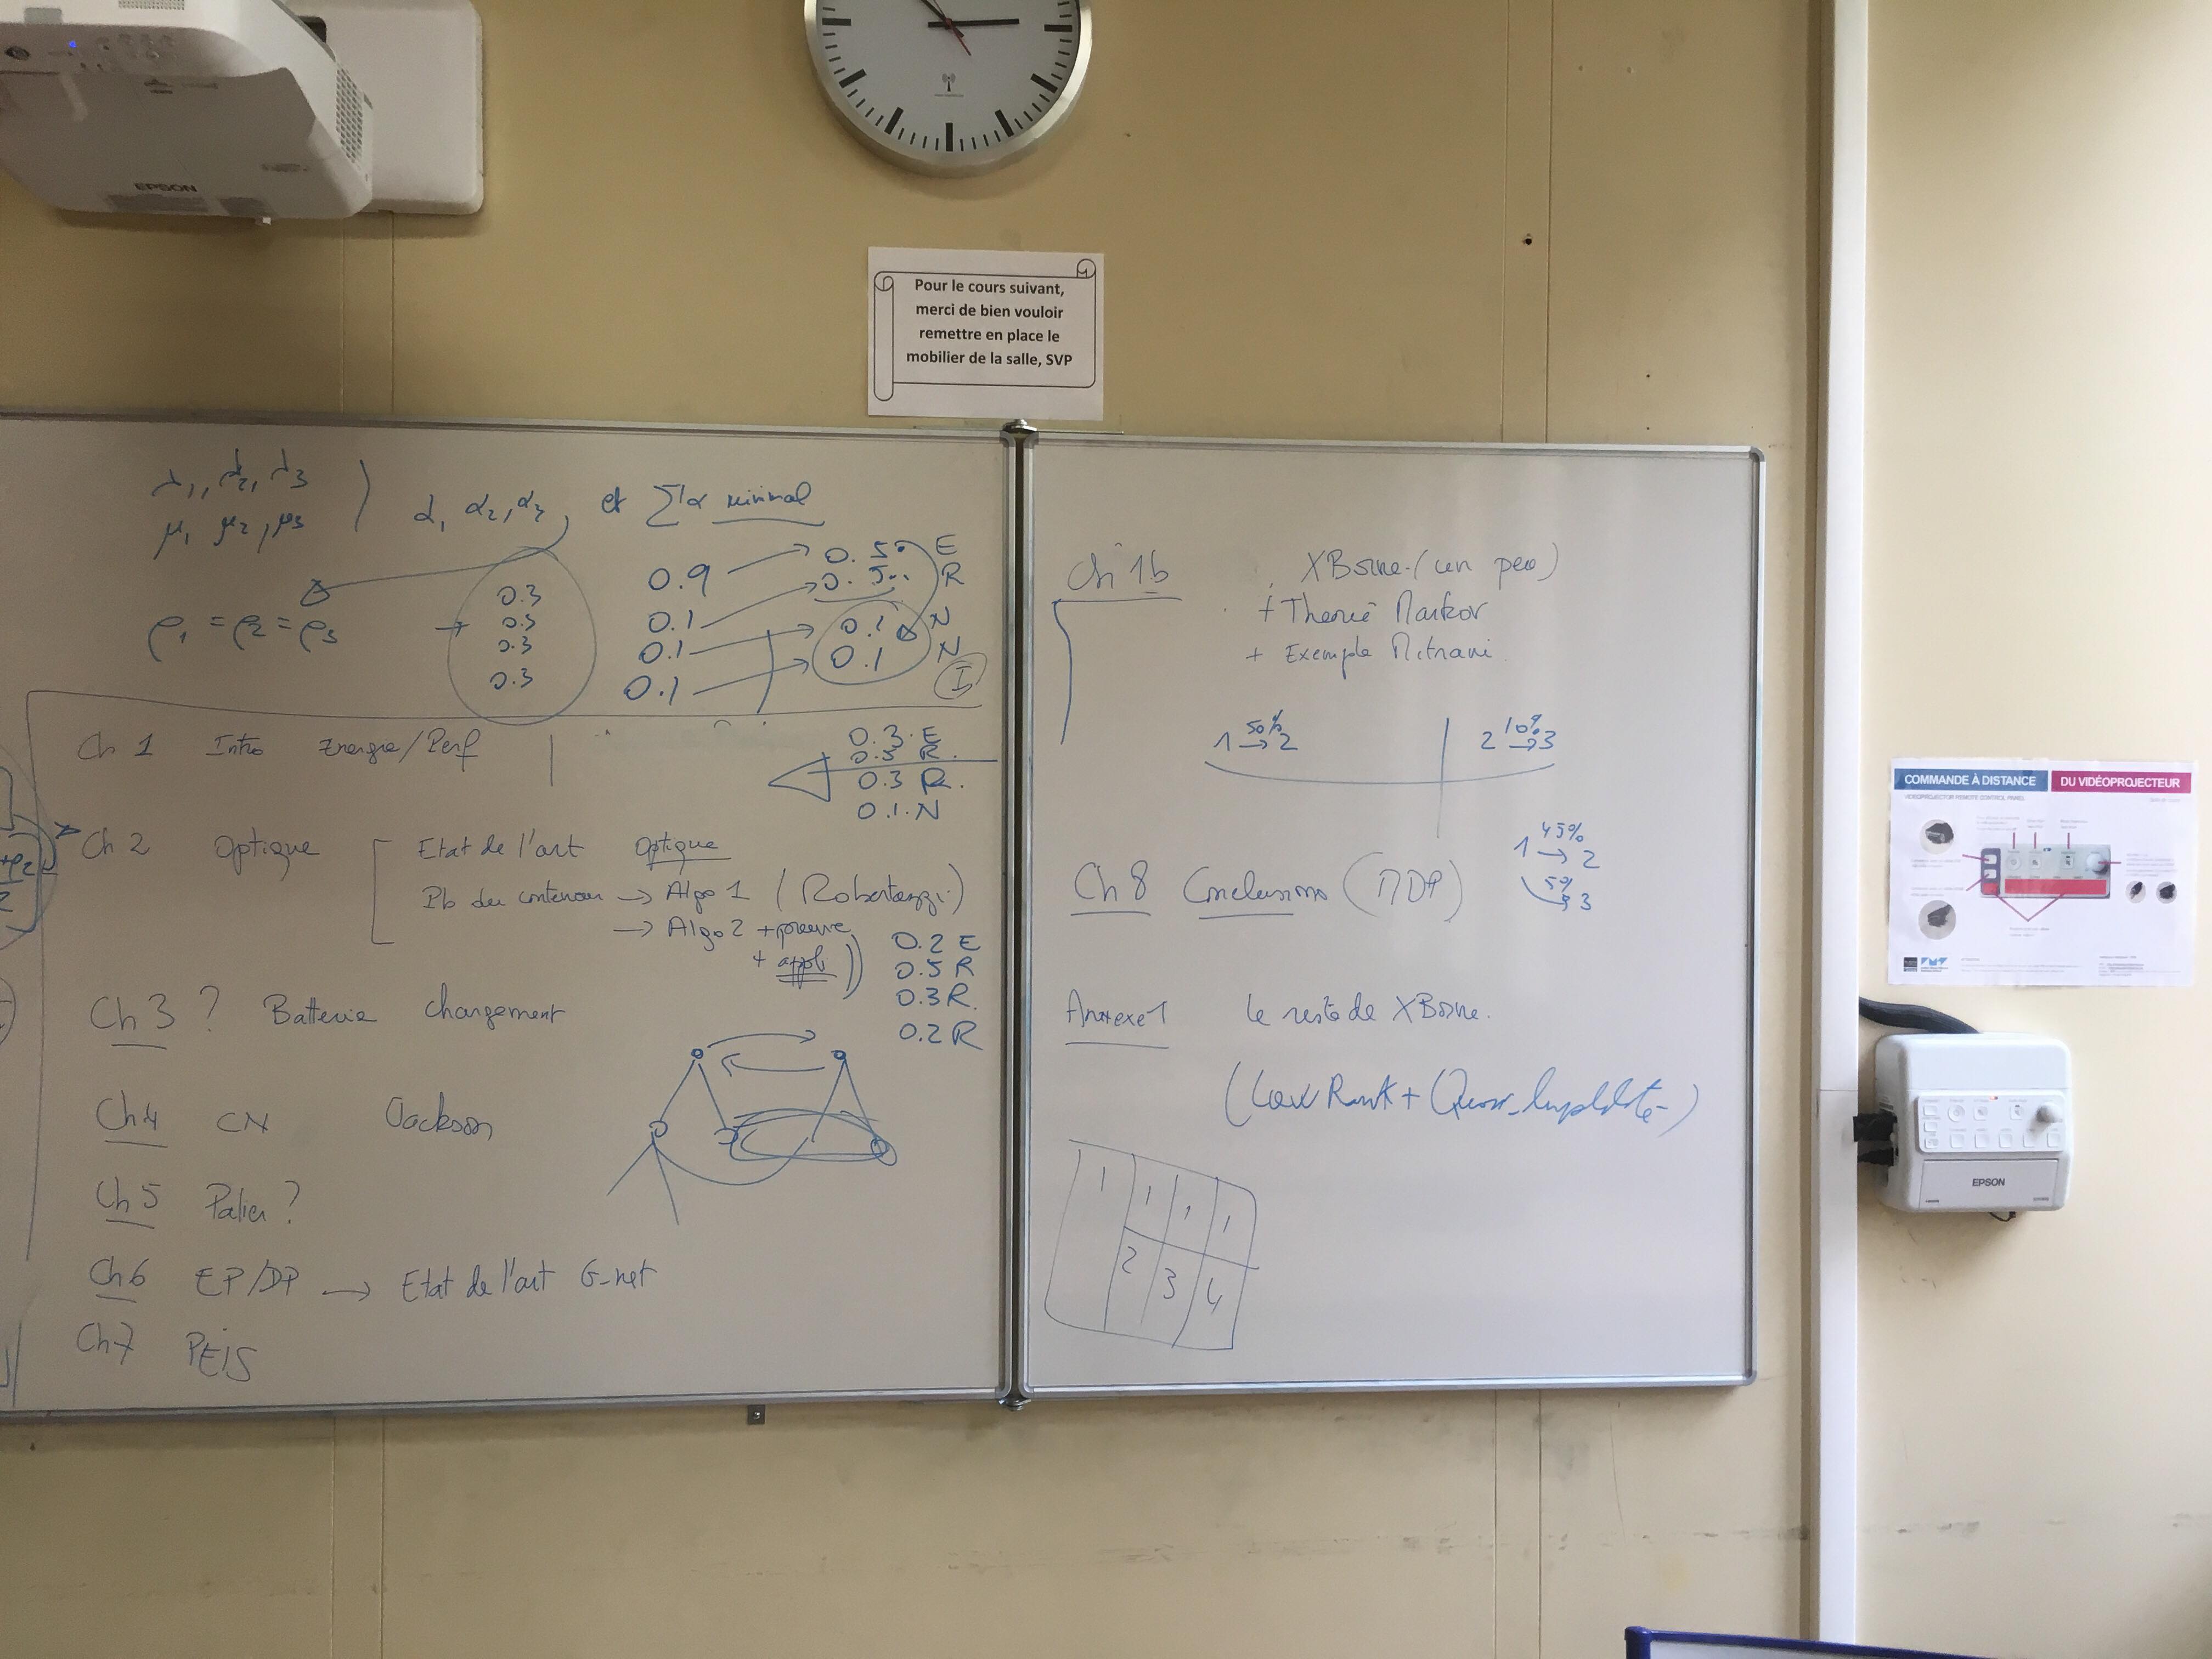 EPSON
Pour le cours suivant,
merci de bien vouloir
remettre en place le
mobilier de la salle, SVP
λ1, λ2, λ3
μ1 μ2, μ3
α1 α2, α3 et Σα minimal
ρ1 = ρ2 = ρ3
0.3
0.3
0.3
0.3
0.9
0.1
0.1
0.1
0.5 E
0.5 R
0.1 N
0.1 N
I
Ch 1 Intro Energie/Perf
0.3 E
0.3 R.
0.3 R.
0.1 N
Ch 2 Optique
Etat de l'art Optique
Pb du conteneur → Algo 1 (Robertazzi)
→ Algo 2 + preuve
+ appli
0.2 E
0.5 R
0.3 R.
0.2 R
Ch 3 ? Batterie chargement
Ch 4 CN Jackson
Ch 5 Palier ?
Ch 6 EP/DP → Etat de l'art G-net
Ch 7 PEIS
Ch 1b XBorne (un peu)
+ Theorie Markov
+ Exemple Mitrani
1 50% → 2
2 10% → 3
1 45% → 2
5% → 3
Ch 8 Conclusions (MDP)
Annexe 1 le reste de XBorne.
(Low Rank +
1 1 1 1
2 3 4
COMMANDE À DISTANCE DU VIDÉOPROJECTEUR
EPSON